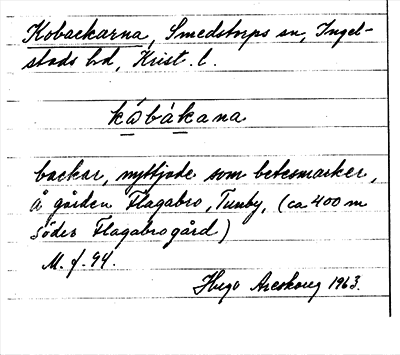 Kobackarna, Smedstorps sn, Ingel-
stads hd, Krist. l.
kábákana
backar, nyttjade som betesmarker,
å gården Flagabro, Tunby, (ca 400 m
söder Flagabro gård)
M. f. 94.
Hugo Areskoug 1963.